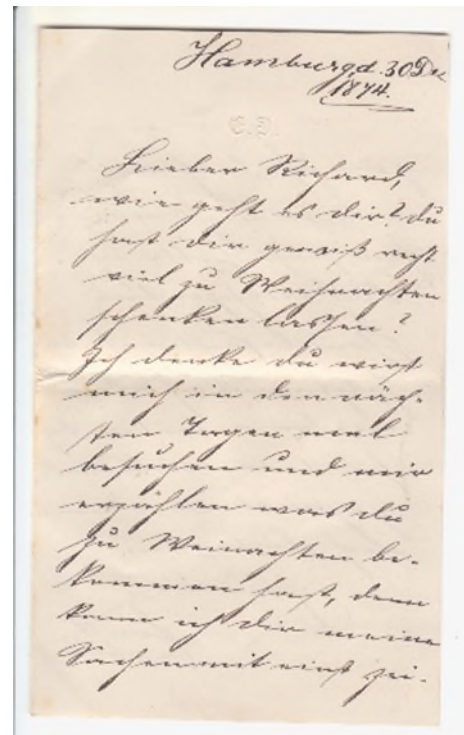 Hamburg, d. 30 Dec
1874.
E. D.
Lieber Richard,
wie geht es dir? du
hast dir gewiß recht
viel zu Weihnachten
schenken lassen?
Ich denke du wirst
mich in den näch-
sten Tagen mal
besuchen und mir
erzählen was du
zu Weinachten be-
kommen hast, dann
kann ich dir meine
Sachen mit zei-